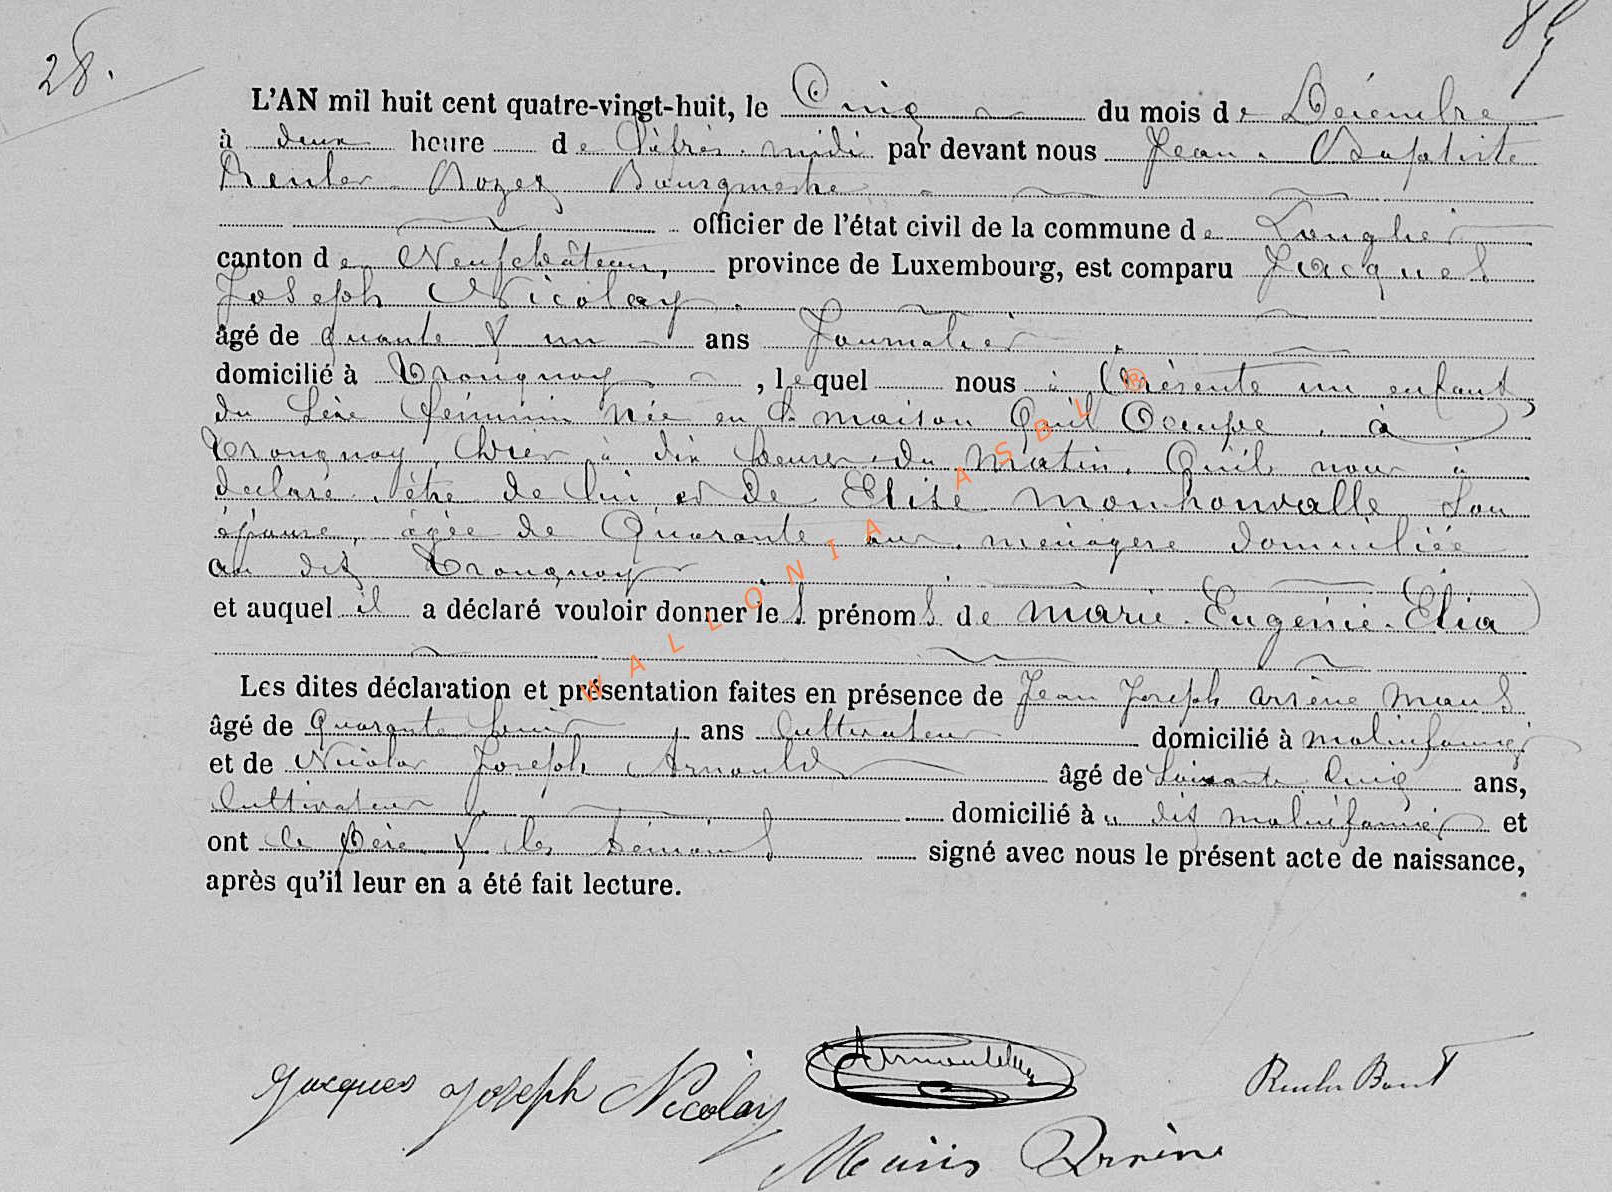 28.
L'AN mil huit cent quatre-vingt-huit, le Cinq du mois de Décembre
à deux heure de l'après-midi par devant nous Jean-Baptiste
Reuler Rozet Bourgmestre
officier de l'état civil de la commune de Longlier
canton de Neufchâteau, province de Luxembourg, est comparu Jacques
Joseph Nicolay
âgé de quante & un ans Journalier
domicilié à Tronquoy, lequel nous à Présenté un enfant
du Sexe féminin née en Sa maison Qu'il Occupe, à
Tronquoy, hier à dix heures du Matin. Qu'il nous à
déclaré être de lui et de Elise monhonvalle Son
épouse, agée de Quarante ans ménagère domiciliée
au dit Tronquoy
et auquel il a déclaré vouloir donner les prénoms de marie-Eugénie-Elia
Les dites déclaration et présentation faites en présence de Jean Joseph arsène maus
âgé de Quarante huit ans Cultivateur domicilié à malinfaing
et de Nicolas Joseph Arnould âgé de Soixante Cinq ans,
Cultivateur domicilié à u dit malinfaing et
ont le Père & les témoins signé avec nous le présent acte de naissance,
après qu'il leur en a été fait lecture.
Jacques Joseph Nicolay
WALLONIA ASBL ®